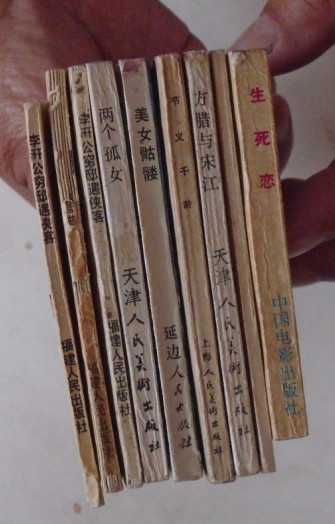 李汧公穷邸遇侠客
福建人民出版社
李汧公穷邸遇侠客
福建人民出版社
两个孤女
天津人民美术出版社
美女骷髅
延边人民出版社
节义千龄
上海人民美術出版社
方腊与宋江
天津人民美術出版社
生死恋
中国电影出版社